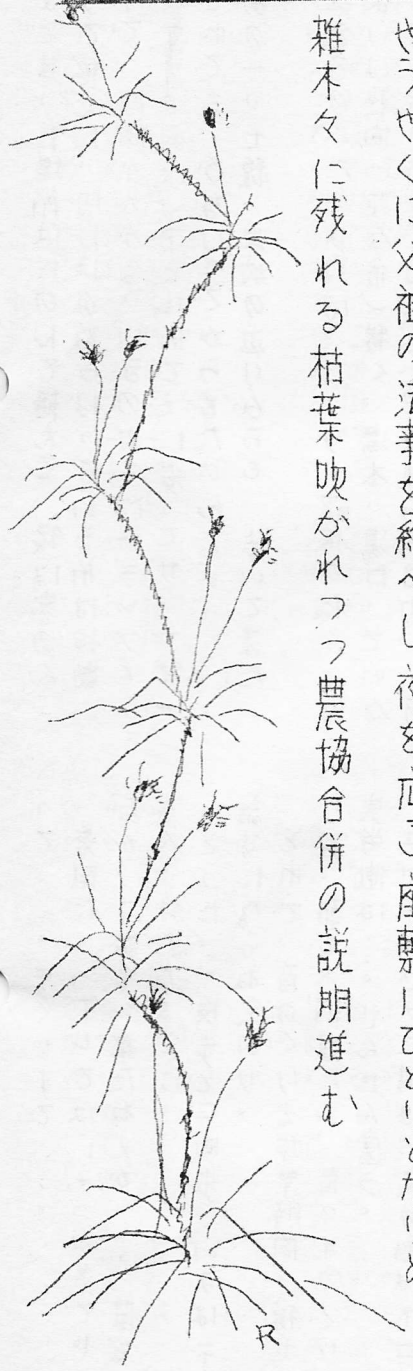 やうやくに父祖の法事を終へし夜を広き座敷にひとり
雑木々に残れる枯葉吹かれつつ農協合併の説明進む
R